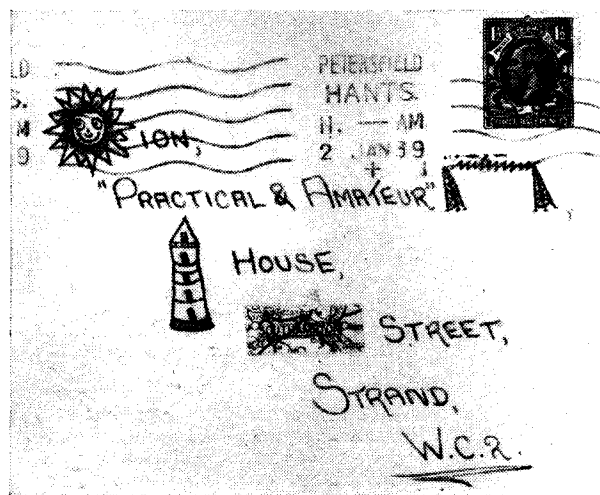 PETERSFIELD
HANTS.
11. — AM
2 JAN 39
ION,
"PRACTICAL & AMATEUR"
HOUSE,
STREET,
STRAND,
W.C.2.